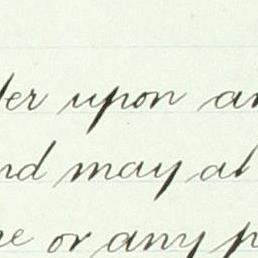 der upon an
nd may al
ne or any p